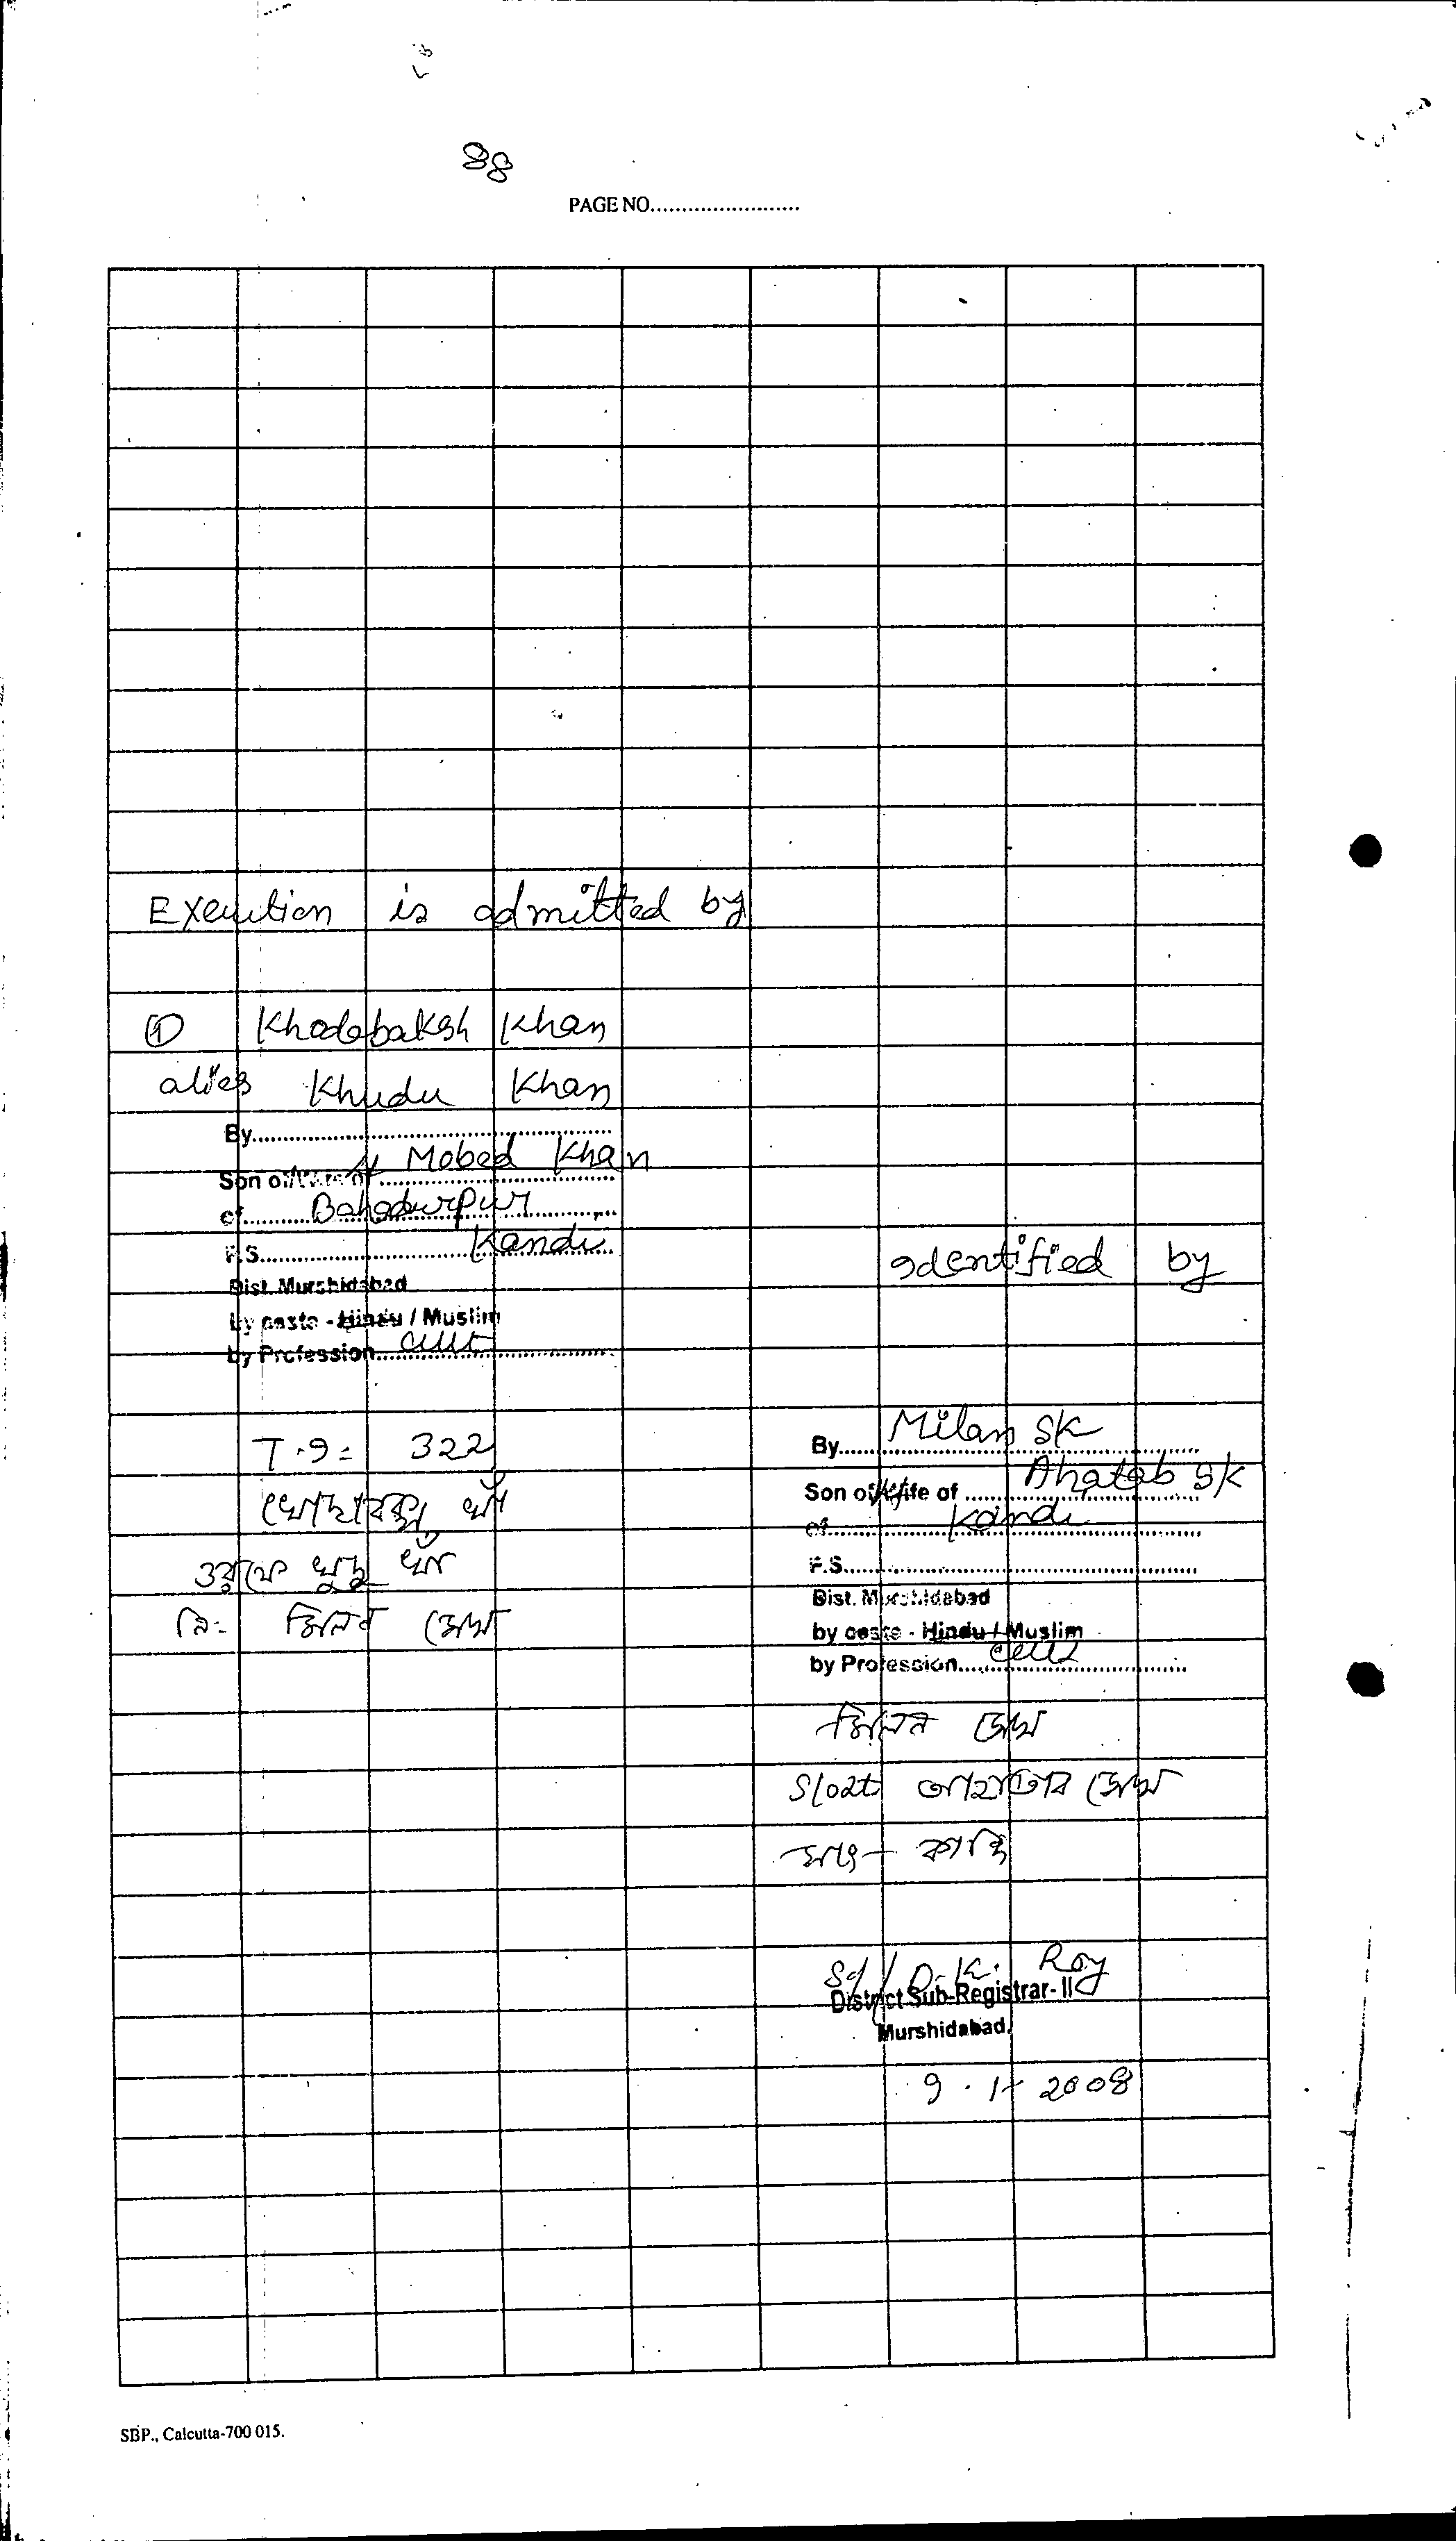 88
PAGE NO........................
Execution is admitted by
① Khodabaksh Khan
alies Khudu Khan
By........................
Son of/Wife of Lt Mobed Khan
of Bahadurpur
P.S. Kandi
Dist. Murshidabad
by caste - Hindu / Muslim
by Profession cult
T.I. 322
খোদাবক্স খাঁ
ওরফে খুদু খাঁ
নিঃ মিলন সেখ
Identified by
By Milan SK
Son of/Wife of Ahatab SK
of Kandi
P.S........................
Dist. Murshidabad
by caste - Hindu / Muslim
by Profession cult
মিলন সেখ
আহাতাব সেখ
সাং- কান্দি
Sd/ D. K. Roy
District Sub-Registrar-II
Murshidabad.
9.1.2008
SBP., Calcutta-700 015.